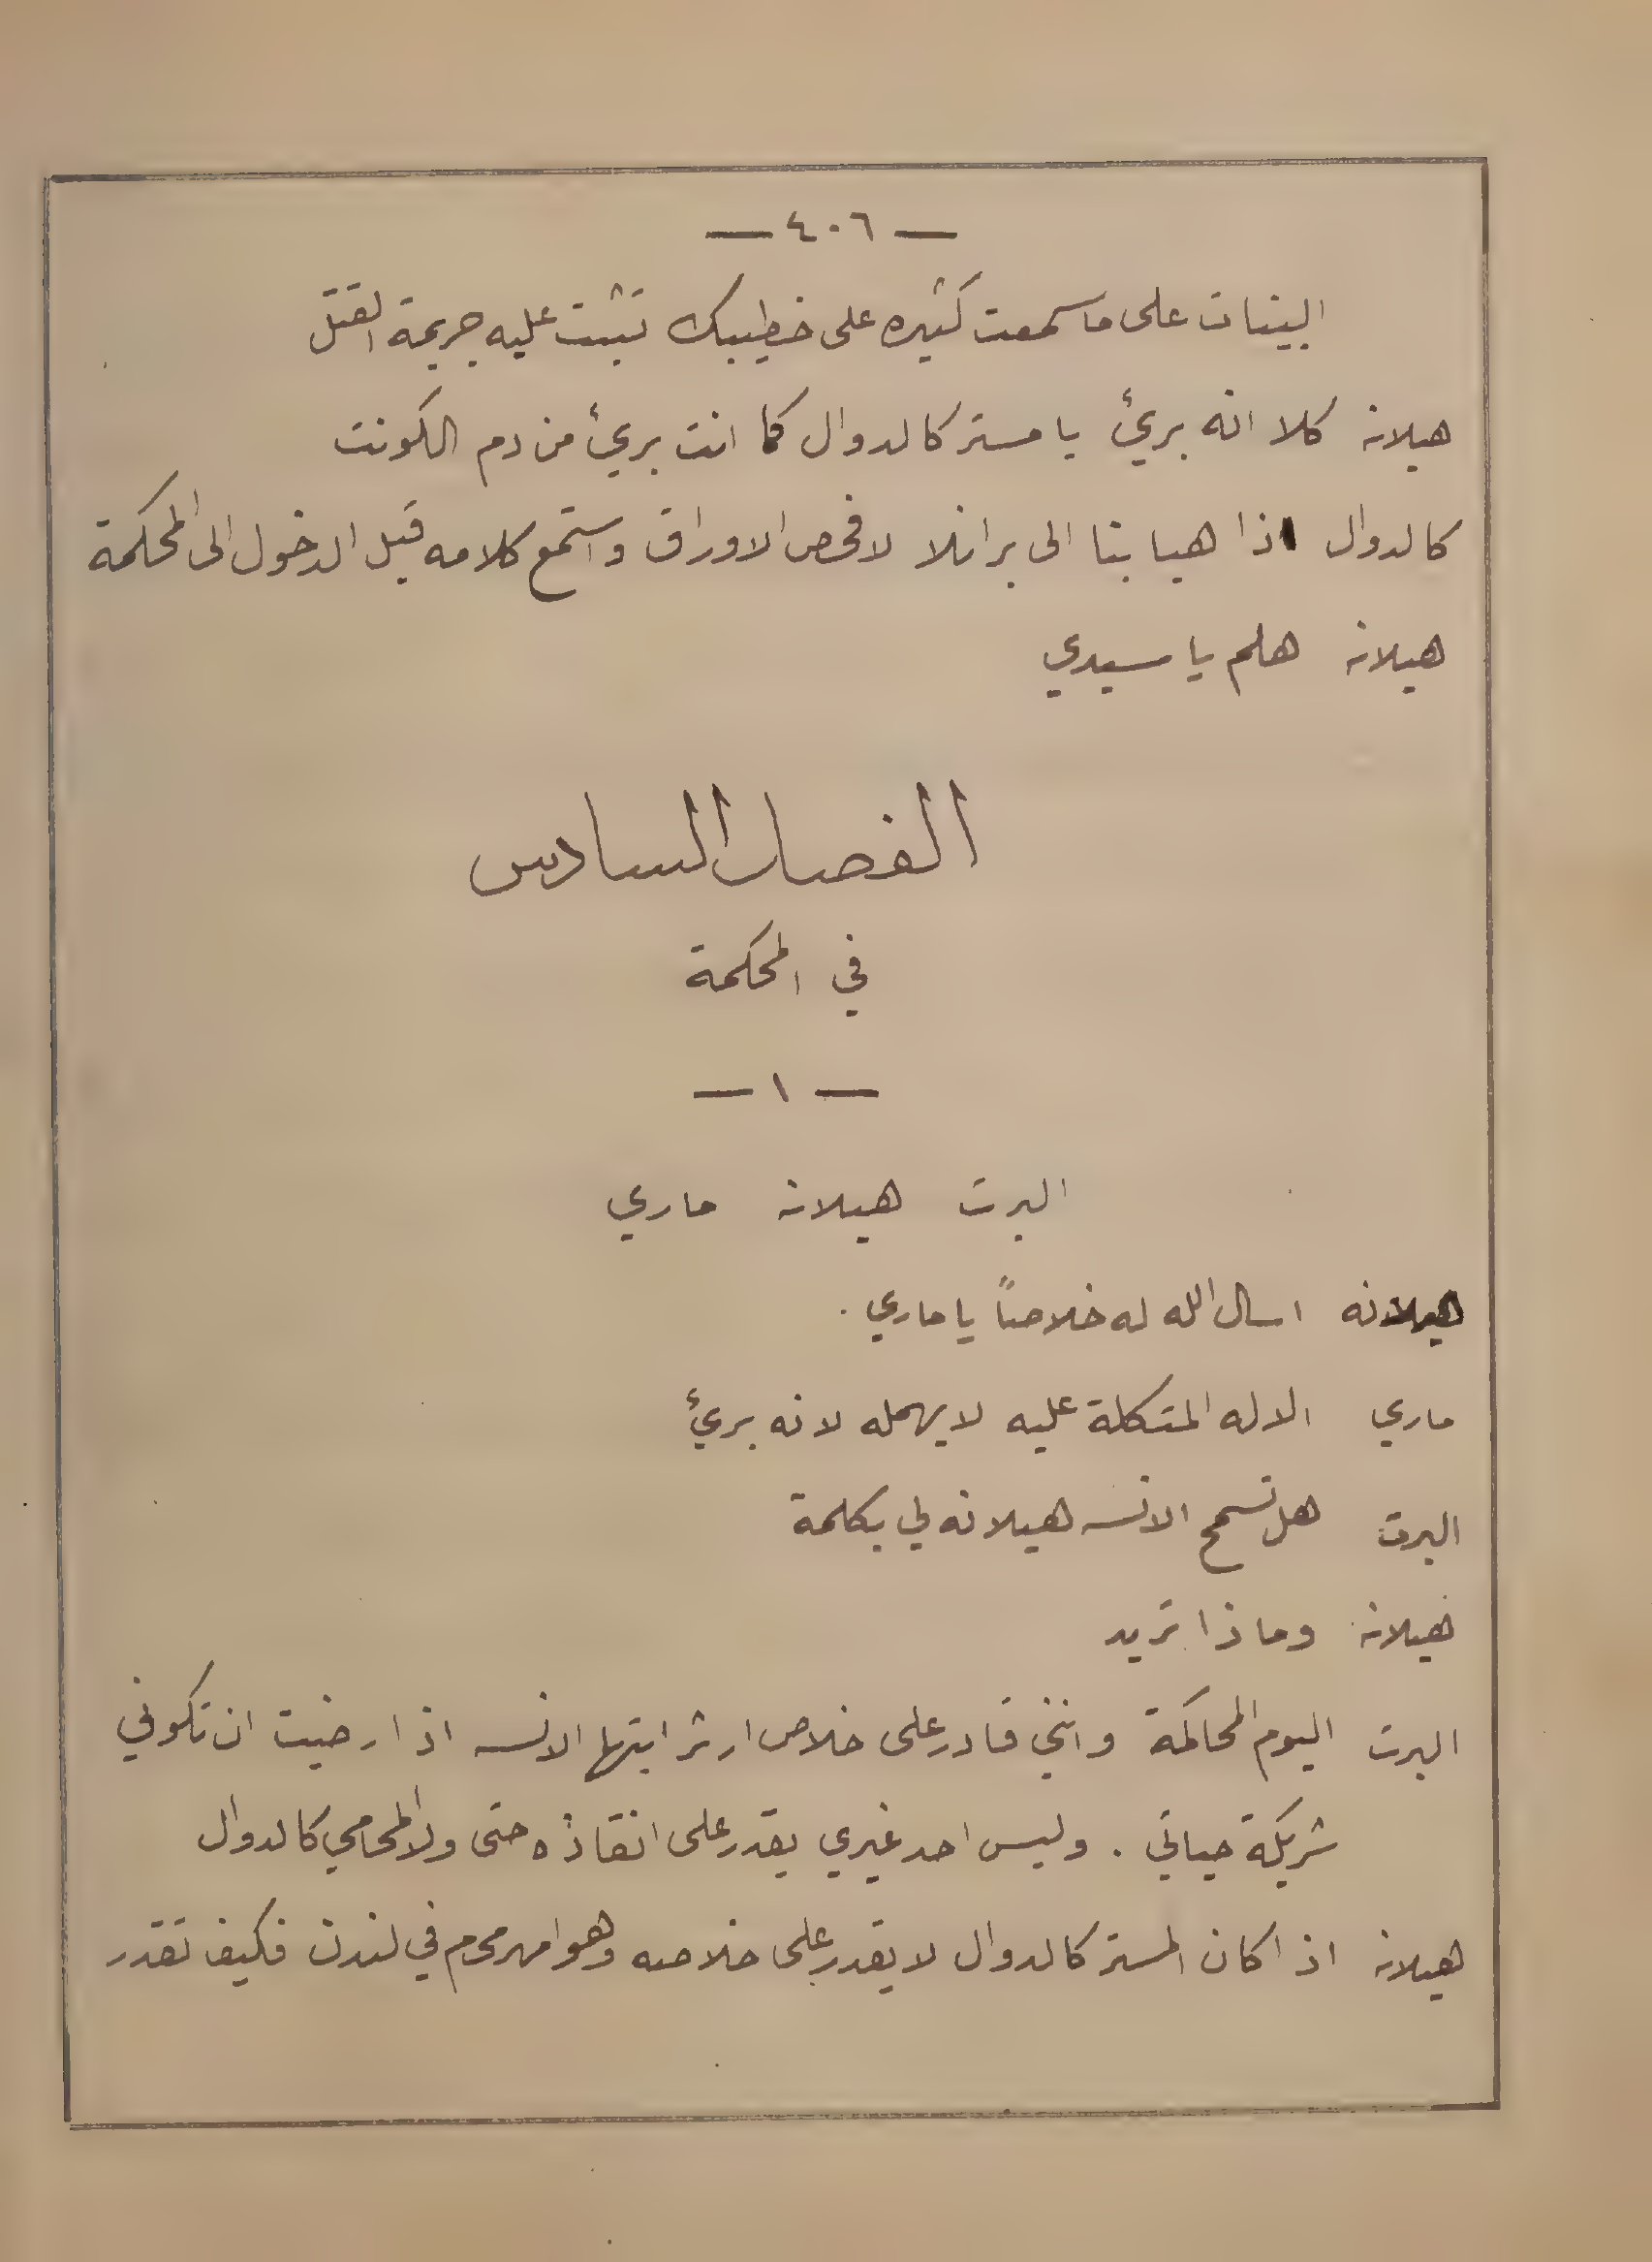 — ٤٠٦ —
البينات على ما سمعت كثيره على خطيبك تثبت عليه جريمة القتل
هيلانه كلا انه بريئ يا مستر كالدوال كما انت بريئ من دم الكونت
كالدوال اذا هيا بنا الى برانلا لافحص الاوراق واستمع كلامه قبل الدخول الى المحكمة
هيلانه هلم يا سيدي
الفصل السادس
في المحكمة
— ١ —
البرت هيلانه ماري
هيلانه اسال الله له خلاصاً يا ماري .
ماري الاله المتكلة عليه لا يهمله لانه بريئ
البرت هل تسمح الانسه هيلانه لي بكلمة
هيلانه وماذا تريد
البرت اليوم المحاكمة وانني قادر على خلاص ارثر ايتها الانسه اذا رضيت ان تكوني
شريكة حياتي . وليس احد غيري يقدر على انقاذه حتى ولا المحامي كالدوال
هيلانه اذا كان المستر كالدوال لا يقدر على خلاصه وهو امهر محام في لندن فكيف تقدر